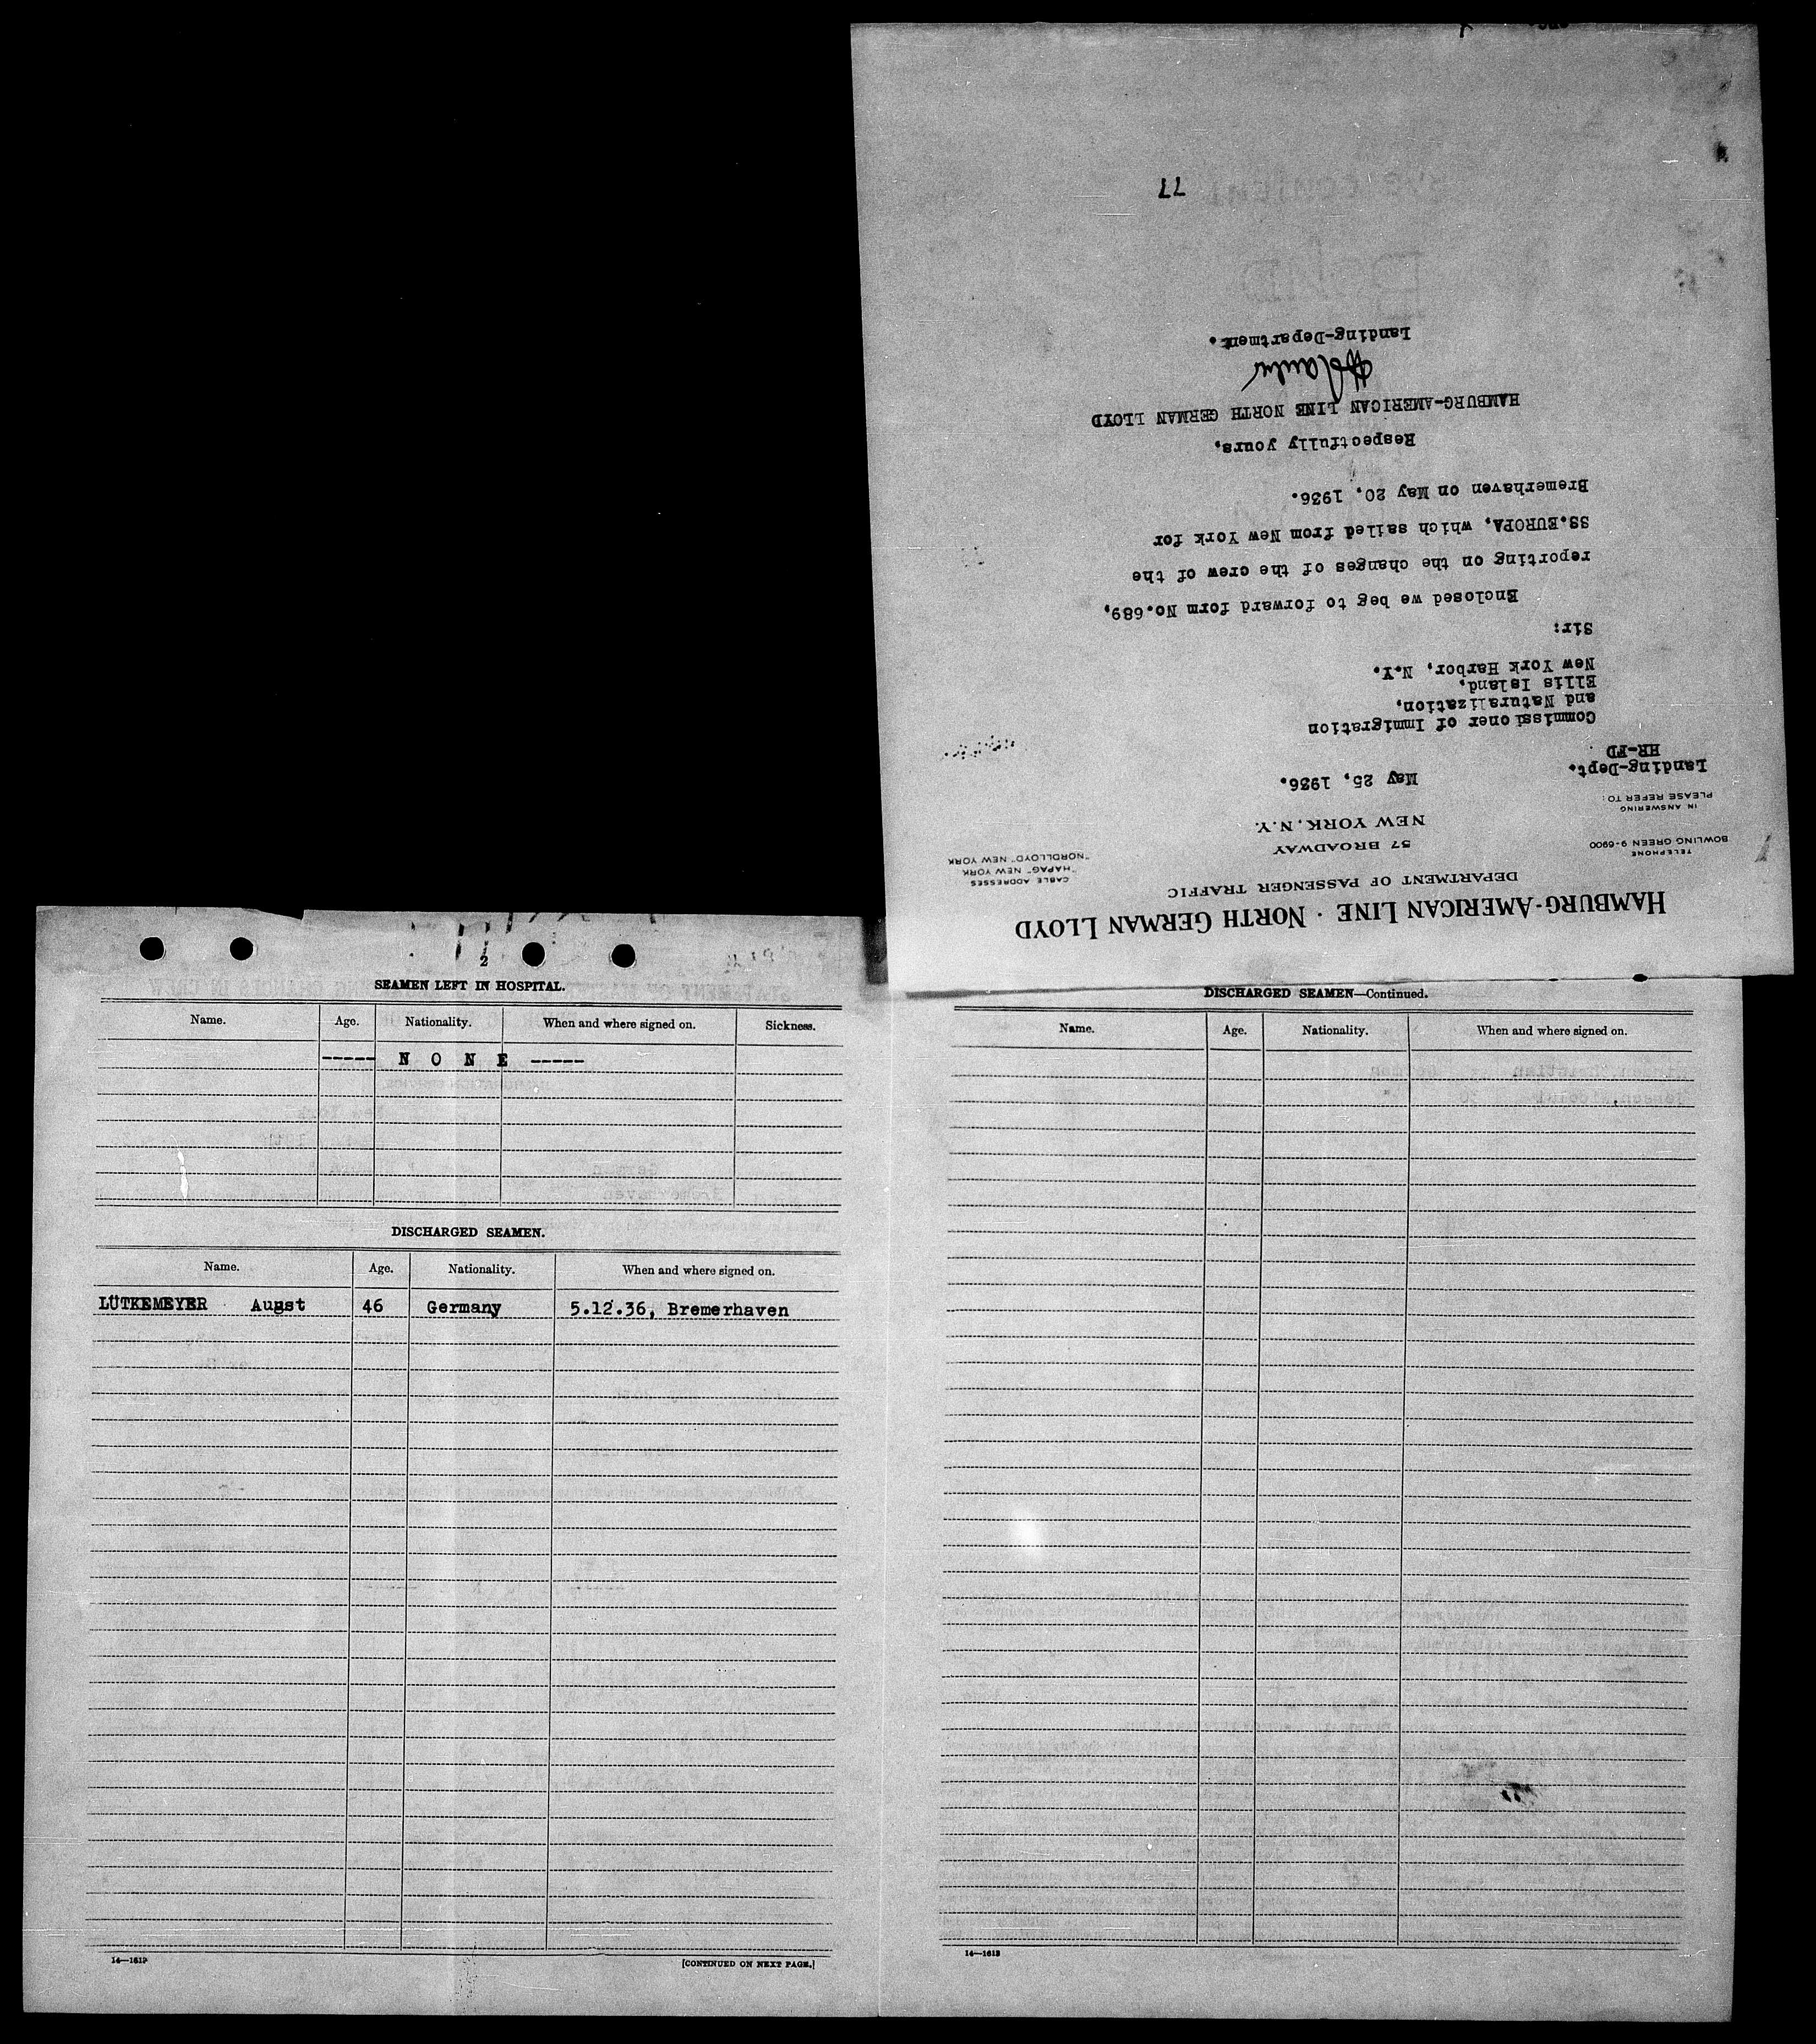 HAMBURG-AMERICAN LINE · NORTH GERMAN LLOYD
DEPARTMENT OF PASSENGER TRAFFIC
57 BROADWAY
NEW YORK, N.Y.
TELEPHONE
BOWLING GREEN 9-6900
CABLE ADDRESSES
"HAPAG" NEW YORK
"NORDLLOYD" NEW YORK
IN ANSWERING
PLEASE REFER TO:
Landing-Dept.
HR-FD
May 25, 1936.
Commissioner of Immigration
and Naturalization,
Ellis Island,
New York Harbor, N.Y.
Sir:
Enclosed we beg to forward form No.689,
reporting on the changes of the crew of the
SS.EUROPA, which sailed from New York for
Bremerhaven on May 20, 1936.
Respectfully yours,
HAMBURG-AMERICAN LINE NORTH GERMAN LLOYD
Landing-Department.
77
2
SEAMEN LEFT IN HOSPITAL.
Name. Age. Nationality. When and where signed on. Sickness.
----- N O N E -----
DISCHARGED SEAMEN.
Name. Age. Nationality. When and where signed on.
LÜTKEMEYER Augst 46 Germany 5.12.36, Bremerhaven
14—1613
[CONTINUED ON NEXT PAGE.]
DISCHARGED SEAMEN—Continued.
Name. Age. Nationality. When and where signed on.
14—1613